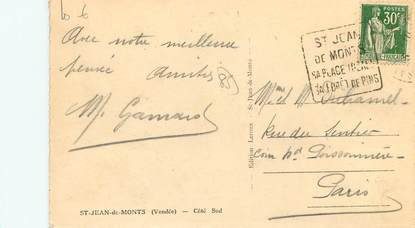 Avec notre meilleure
pensée Amitiés
M. Gamard
85
ST-JEAN-de-MONTS (Vendée) — Côté Sud
Edition Lacroix St Jean de Monts
ST JEAN
DE MONTS
SA PLAGE
SA FORET DE PINS
POSTES
30c
Mme et M
Rue du Sentier
Coin Bd Poissonnière
Paris